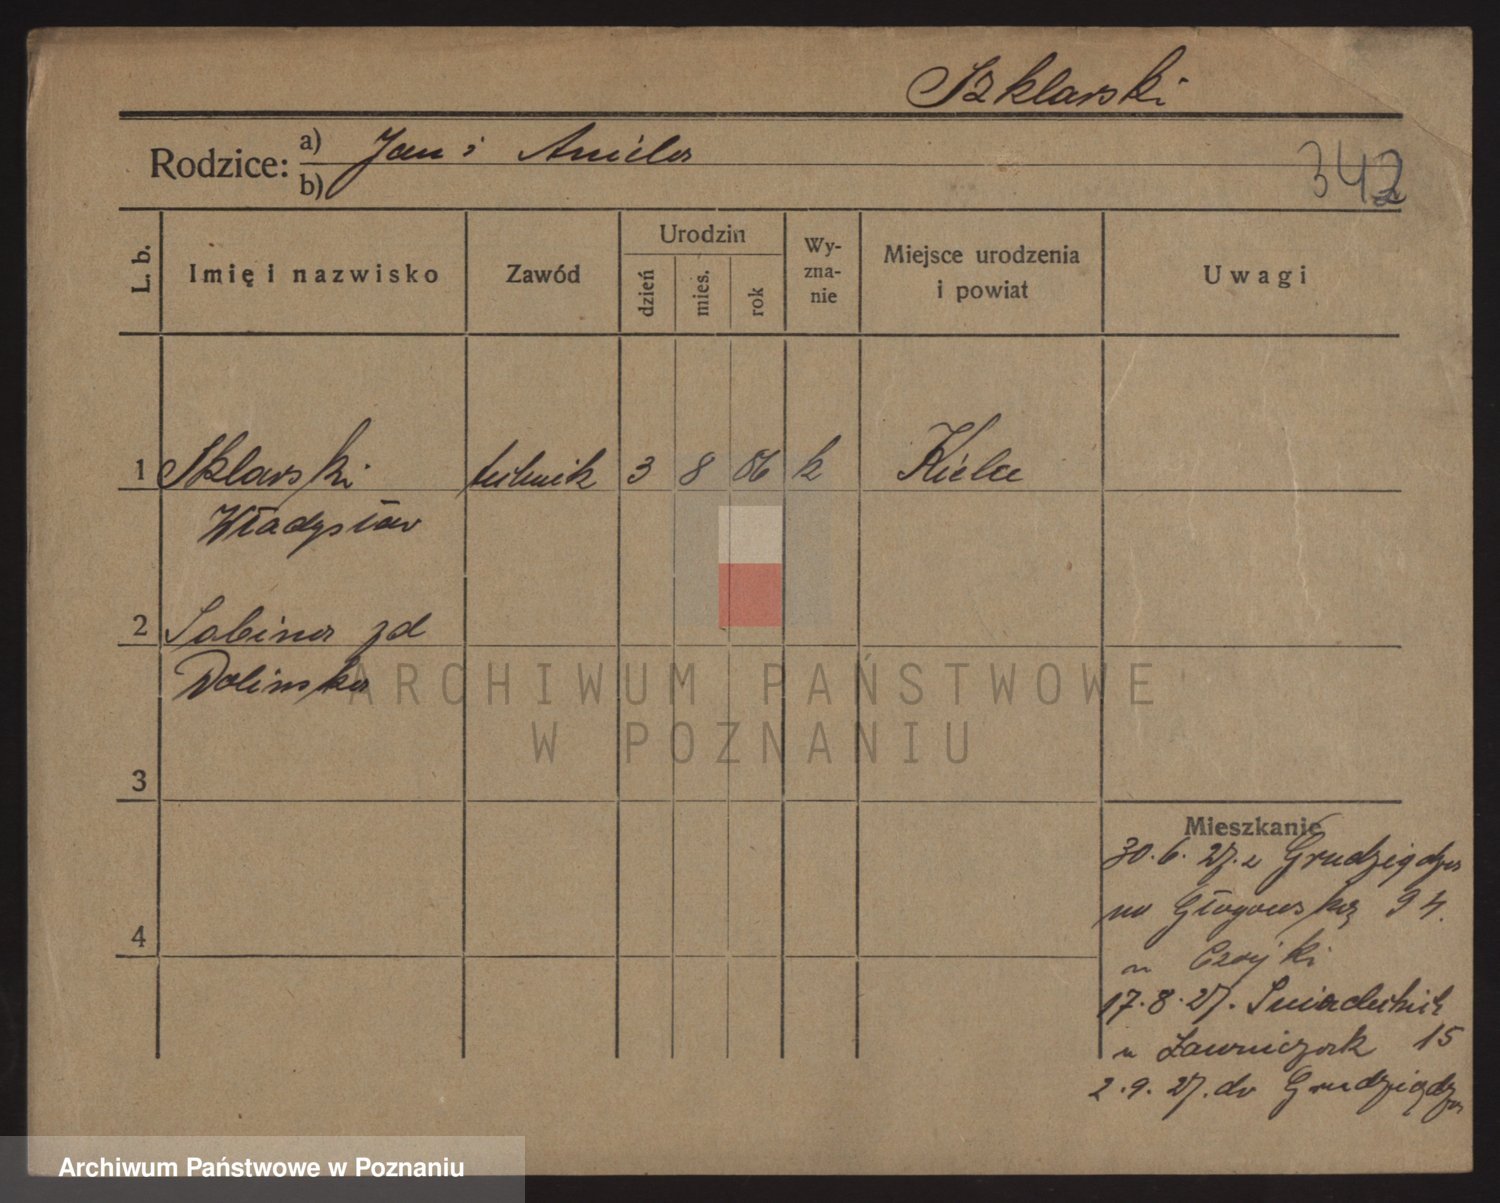 Szklarski
Rodzice: a) Jan i Aniela
b)
342
L. b.
Imię i nazwisko
Zawód
Urodzin
dzień
mies.
rok
Wy-
zna-
nie
Miejsce urodzenia
i powiat
Uwagi
1 Sklarski technik 3 8 06 k Kielce
Władysław
2 Sabina zd
Dolinska
3
4
Mieszkanie
30.6.27. z Grudziądza
na Głogowską 94.
u Czajki
17.8.27. Śniadeckich
u Ławniczak 15
2.9.27. do Grudziądza
ARCHIWUM PAŃSTWOWE
W POZNANIU
Archiwum Państwowe w Poznaniu